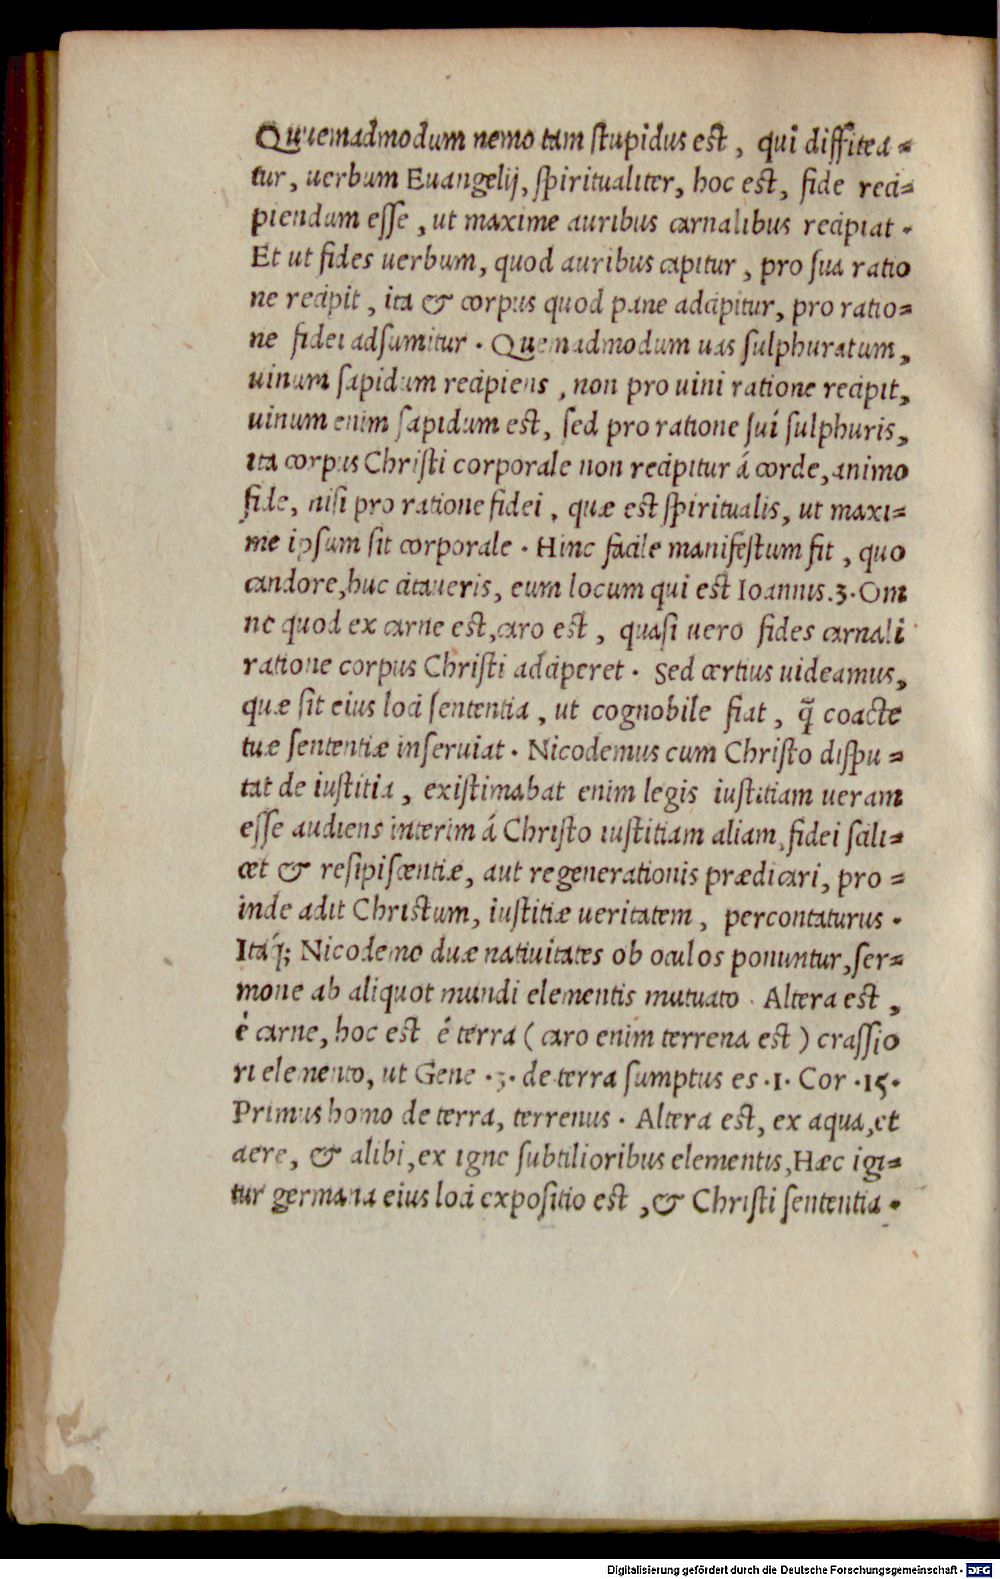 Quuemadmodum nemo tam stupidus est, qui diffitea=
tur, uerbum Euangelij, spiritualiter, hoc est, fide reci=
piendum esse, ut maxime auribus carnalibus recipiat.
Et ut fides uerbum, quod auribus capitur, pro sua ratio
ne recipit, ita & corpus quod pane adcipitur, pro ratio=
ne fidei adsumitur. Quemadmodum uas sulphuratum,
uinum sapidum recipiens, non pro uini ratione recipit,
uinum enim sapidum est, sed pro ratione sui sulphuris,
ita corpus Christi corporale non recipitur á corde, animo
fide, nisi pro ratione fidei, quæ est spiritualis, ut maxi=
me ipsum sit corporale. Hinc facile manifestum fit, quo
candore, huc citaueris, eum locum qui est Ioannis.3.Om
ne quod ex carne est, caro est, quasi uero fides carnali
ratione corpus Christi adciperet. Sed certius uideamus,
quæ sit eius loci sententia, ut cognobile fiat, q̃ coacte
tuæ sententiæ inseruiat. Nicodemus cum Christo dispu=
tat de iustitia, existimabat enim legis iustitiam ueram
esse audiens interim á Christo iustitiam aliam, fidei scili=
cet & resipiscentiæ, aut regenerationis prædicari, pro=
inde adit Christum, iustitiæ ueritatem, percontaturus.
Itáq; Nicodemo duæ natiuitates ob oculos ponuntur, ser=
mone ab aliquot mundi elementis mutuato. Altera est,
é carne, hoc est é terra (caro enim terrena est) crassio
ri elemento, ut Gene.3. de terra sumptus es.1. Cor.15.
Primus homo de terra, terrenus. Altera est, ex aqua, et
aere, & alibi, ex igne subtilioribus elementis, Hæc igi=
tur germana eius loci expositio est, & Christi sententia.
Digitalisierung gefördert durch die Deutsche Forschungsgemeinschaft - DFG